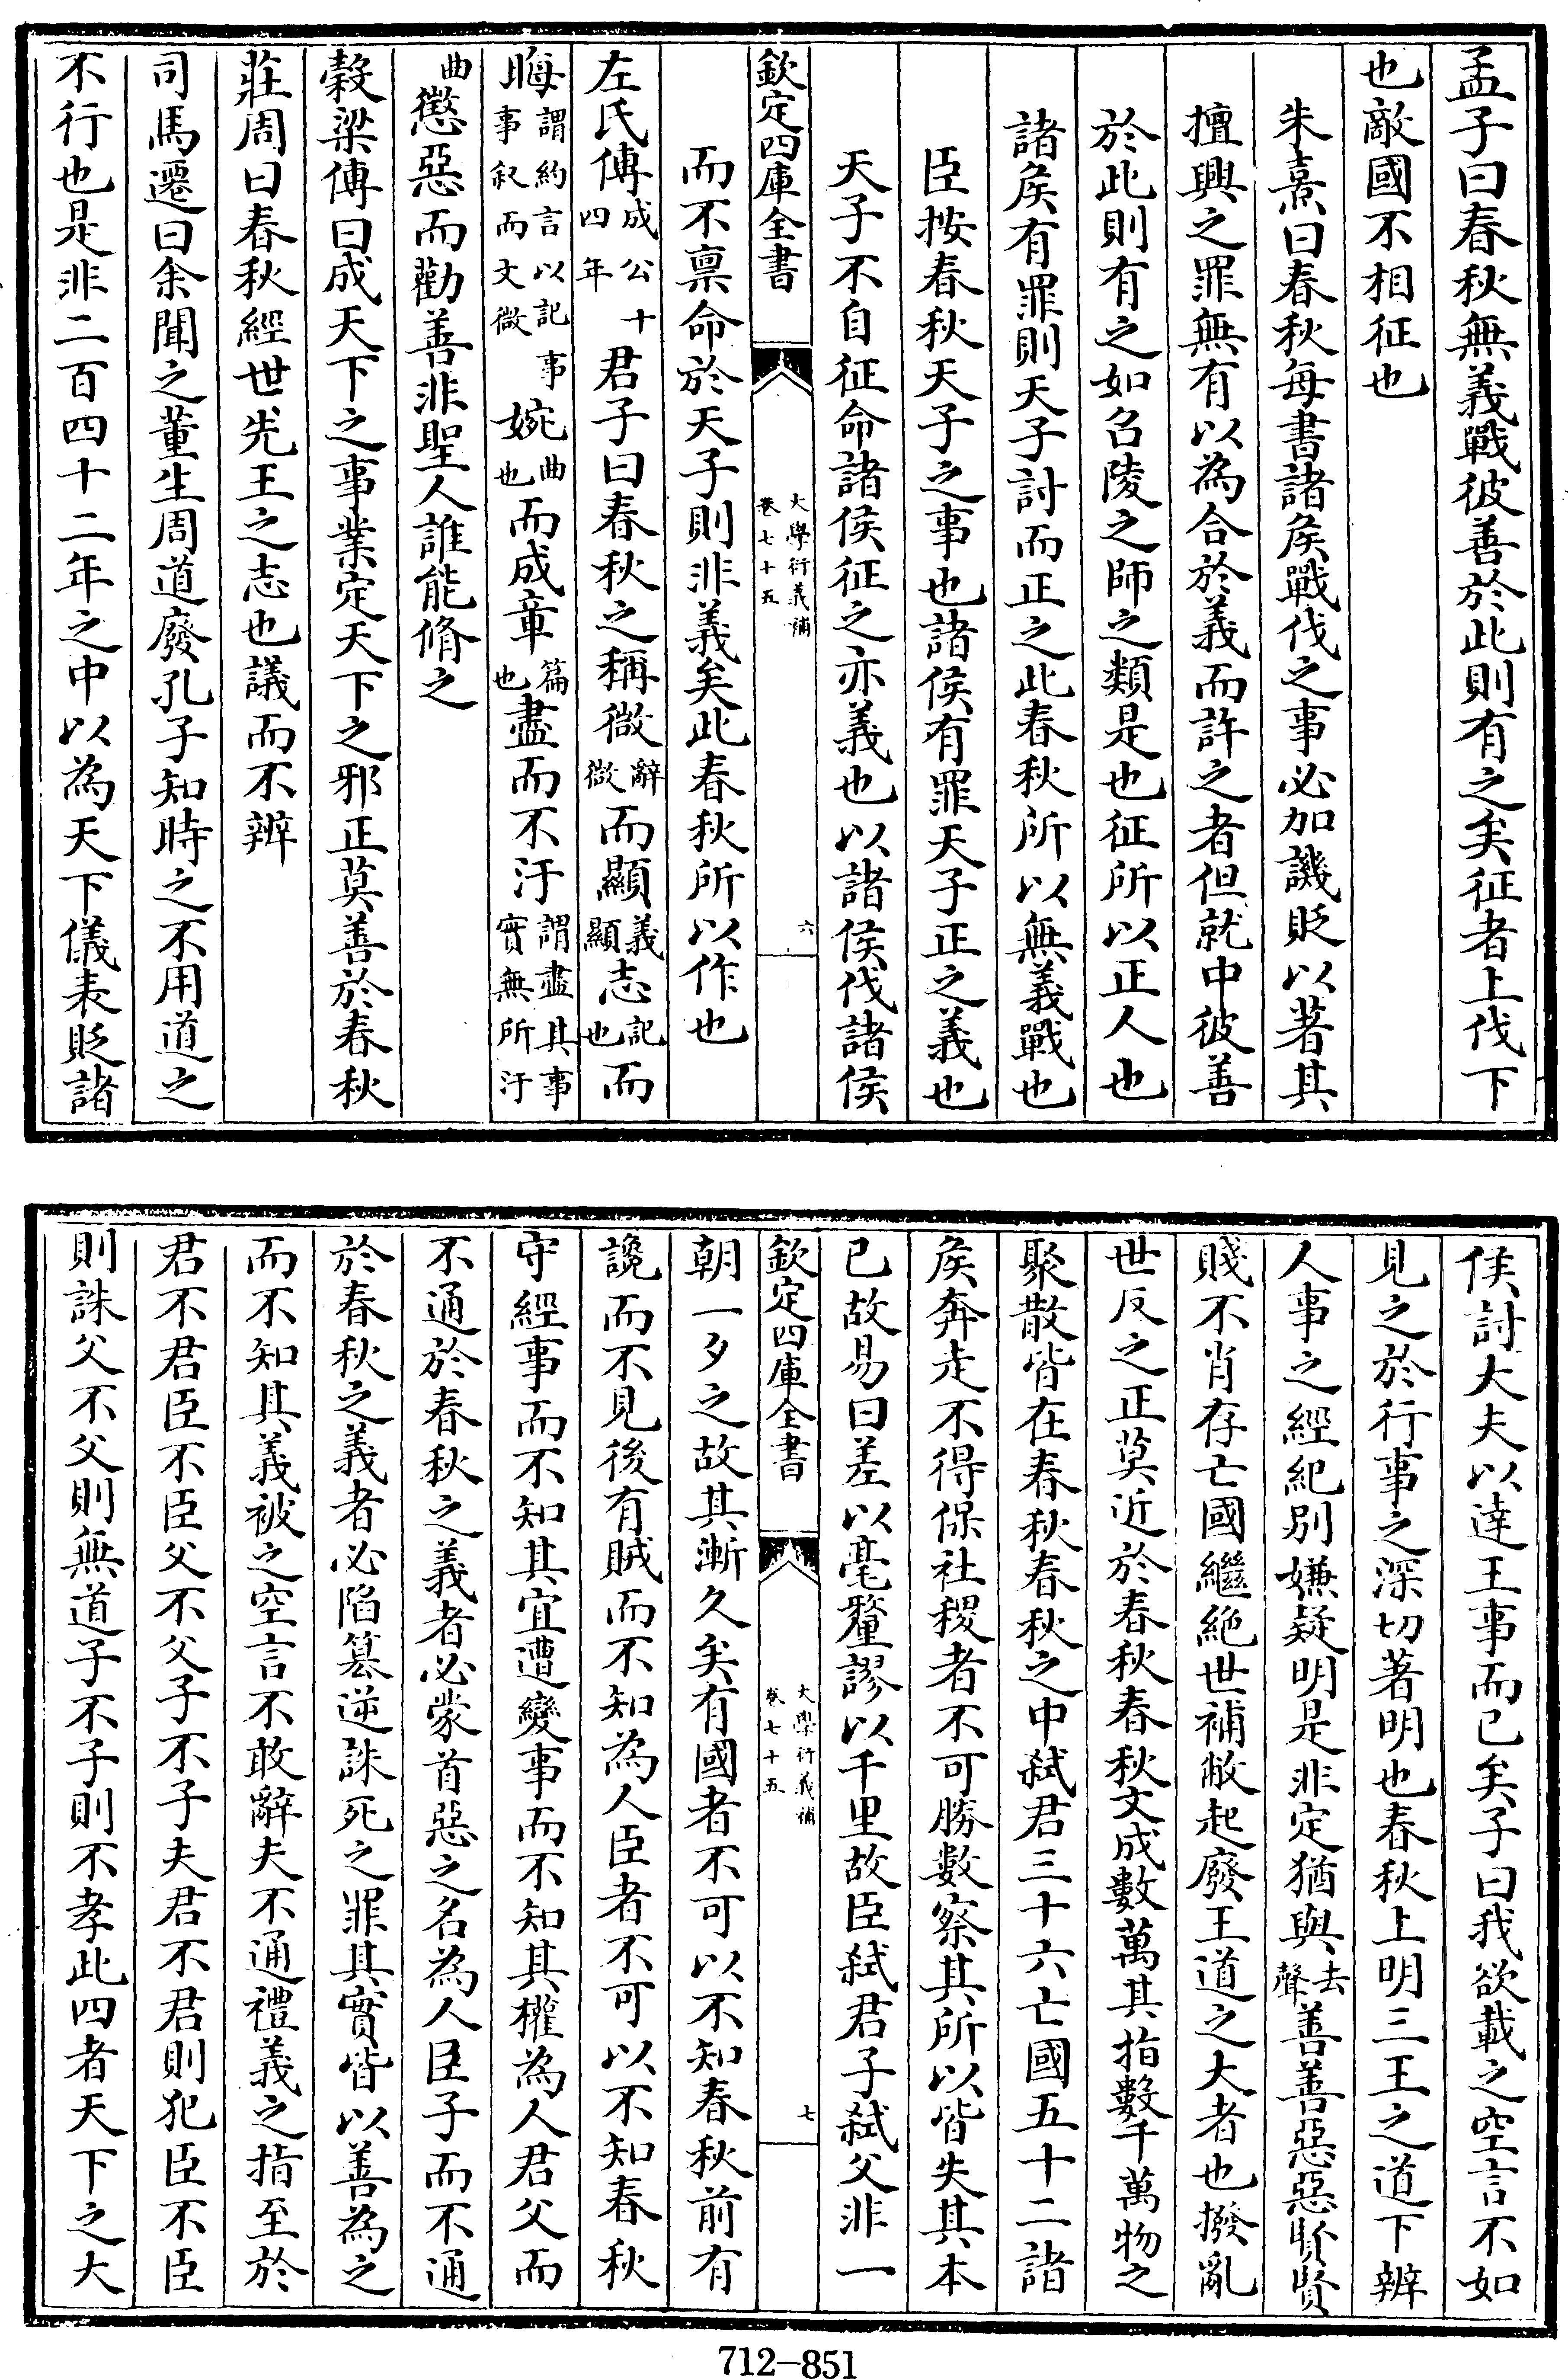 孟子曰春秋無義戰彼善於此則有之矣征者上伐下
也敵國不相征也
朱熹曰春秋每書諸侯戰伐之事必加譏貶以著其
擅興之罪無有以為合於義而許之者但就中彼善
於此則有之如召陵之師之類是也征所以正人也
諸侯有罪則天子討而正之此春秋所以無義戰也
臣按春秋天子之事也諸侯有罪天子正之義也
天子不自征命諸侯征之亦義也以諸侯伐諸侯
欽定四庫全書
大學衍義補
卷七十五
六
而不禀命於天子則非義矣此春秋所以作也
左氏傳成公十四年君子曰春秋之稱微辭微而顯義顯志記也而
晦謂約言以記事事叙而文微婉曲也而成章篇也盡而不汙謂盡其事實無所汙
曲懲惡而勸善非聖人誰能脩之
穀梁傳曰成天下之事業定天下之邪正莫善於春秋
莊周曰春秋經世先王之志也議而不辨
司馬遷曰余聞之董生周道廢孔子知時之不用道之
不行也是非二百四十二年之中以為天下儀表貶諸
侯討大夫以達王事而已矣子曰我欲載之空言不如
見之於行事之深切著明也春秋上明三王之道下辨
人事之經紀別嫌疑明是非定猶與去聲善善惡惡賢賢
賤不肖存亡國繼絶世補敝起廢王道之大者也撥亂
世反之正莫近於春秋春秋文成數萬其指數千萬物之
聚散皆在春秋春秋之中弑君三十六亡國五十二諸
侯奔走不得保社稷者不可勝數察其所以皆失其本
已故易曰差以毫釐謬以千里故臣弑君子弑父非一
欽定四庫全書
大學衍義補
卷七十五
七
朝一夕之故其漸久矣有國者不可以不知春秋前有
讒而不見後有賊而不知為人臣者不可以不知春秋
守經事而不知其宜遭變事而不知其權為人君父而
不通於春秋之義者必蒙首惡之名為人臣子而不通
於春秋之義者必陷簒逆誅死之罪其實皆以善為之
而不知其義被之空言不敢辭夫不通禮義之指至於
君不君臣不臣父不父子不子夫君不君則犯臣不臣
則誅父不父則無道子不子則不孝此四者天下之大
712-851